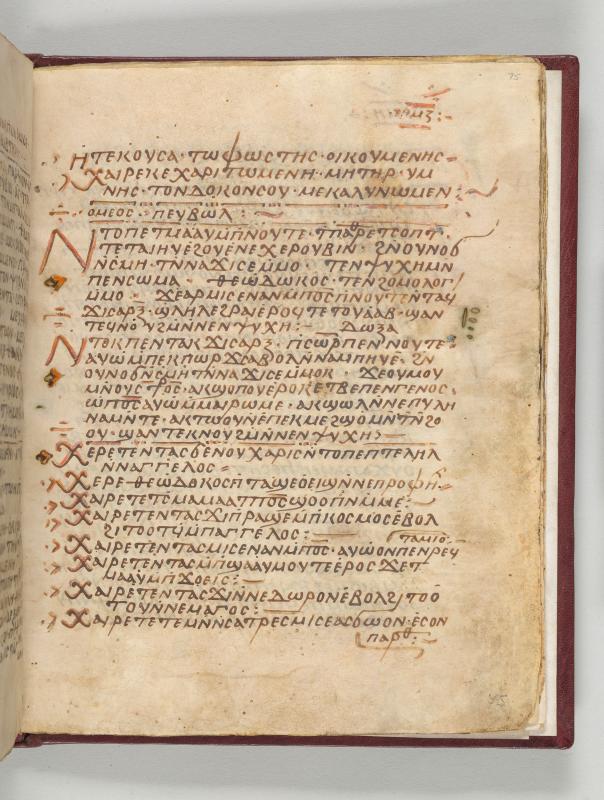 75
ⲎⲦⲈⲔⲞⲨⲤⲀ · ⲦⲰⲪⲰⲤⲦⲎⲤ · ⲞⲒⲔⲞⲨⲘⲈⲚⲎⲤ
ⲬⲀⲒⲢⲈⲔⲈⲬⲀⲢⲒⲦⲰⲘⲈⲚⲎ · ⲘⲎⲦⲎⲢ · ⲨⲘ
ⲚⲎⲤ · ⲦⲞⲚⲆⲞⲔⲞⲚⲤⲞⲨ · ⲘⲈⲔⲀⲖⲨⲚⲰⲘⲈⲚ
ⲞⲘⲈⲞⲤ · ⲠⲈⲨⲂⲰⲖ :
ⲚⲦⲞⲠⲈⲦⲘⲀⲀⲨⲘⲠⲚⲞⲨⲦⲈ
ⲦⲈⲦⲀⲒⲎⲨⲈϨⲞⲨⲈⲚⲈⲬⲈⲢⲞⲨⲂⲒⲚ · ϨⲚⲞⲨⲚⲞϬ
ⲚⲤⲘⲎ · ⲦⲚⲚⲀϪⲒⲤⲈⲘⲘⲞ · ⲦⲈⲚⲮⲨⲬⲎⲘⲚ
ⲠⲈⲚⲤⲰⲘⲀ · ⲐⲈⲰⲆⲰⲔⲞⲤ · ⲦⲈⲚϨⲞⲘⲞⲖⲞⲅ
ⲘⲘⲞ · ϪⲈⲀⲢⲘⲒⲤⲈⲚⲀⲚⲘⲠⲞⲤⲠⲚⲞⲨⲦⲈⲚⲦⲀϤ
ϪⲒⲤⲀⲢⲜ · ϢⲖⲎⲖⲈϨⲢⲀⲒⲈⲢⲞϤⲦⲈⲦⲞⲨⲀⲀⲂ · ϢⲀⲚ
ⲦⲈϤⲚⲀ ⲨϨⲘⲚⲈⲚⲮⲨⲬⲎ : ⲆⲰⲜⲀ
ⲚⲦⲞⲔⲠⲈⲚⲦⲀⲔϪⲒⲤⲀⲢⲜ · ⲠϢⲞⲢⲠⲈⲚⲚⲞⲨⲦⲈ
ⲀⲨⲰⲘⲠⲈⲔⲠⲰⲢϪⲈⲀⲂⲞⲖⲚⲚⲀⲘⲠⲎⲨⲈ · ϨⲚ
ⲞⲨⲚⲞϬⲚⲤⲘⲎⲦⲚⲚⲀϪⲒⲤⲈⲘⲘⲞⲔ · ϪⲈⲞⲨⲘⲞⲨ
ⲘⲚⲞⲨⲤⲢⲞⲤ · ⲀⲔϢⲞⲠⲞⲨⲈⲢⲞⲔⲈⲦⲂⲈⲠⲈⲚⲄⲈⲚⲞⲤ
ⲰⲠⲞⲤⲀⲨⲰⲘⲘⲀⲒⲢⲰⲘⲈ · ⲀⲔϢⲰⲖⲚⲚⲈⲠⲨⲖⲎ
ⲚⲀⲘⲚⲦⲈ · ⲀⲔⲦⲰⲞⲨⲚⲈⲠⲈⲔⲘⲈϨϢⲞⲘⲚⲦⲚϨⲞ
ⲞⲨ · ϢⲀⲚⲦⲈⲔⲚⲞⲨϨⲘⲚⲚⲈⲚⲮⲨⲬⲎ
ⲬⲈⲢⲈⲦⲈⲚⲦⲀⲤϬⲈⲚⲞⲨⲬⲀⲢⲒⲤⲚⲦⲞⲠⲈⲠⲦⲈⲖⲎⲖ
ⲚⲚⲀⲄⲄⲈⲖⲞⲤ
ⲬⲈⲢⲈ · ⲐⲈⲰⲆⲞⲔⲞⲤⲚⲦⲀϢⲈⲞⲈⲒϢⲚⲚⲈⲠⲢⲞⲪⲎ
ⲬⲀⲒⲢⲈⲦⲈⲦⲤⲘⲀⲘⲀⲀⲦⲠⲞⲤϢⲞⲞⲠⲚⲘⲘⲈ
ⲬⲀⲒⲢⲈⲦⲈⲚⲦⲀⲤϪⲒⲠⲢⲀϢⲈⲘⲠⲔⲞⲤⲘⲞⲤⲈⲂⲞⲖ
ϨⲒⲦⲞⲞⲦϤⲘⲠⲀⲄⲄⲈⲖⲞⲤ : ⲦⲀⲘⲒⲞ
ⲬⲀⲒⲢⲈⲦⲈⲚⲦⲀⲤⲘⲒⲤⲈⲚⲀⲚⲘⲠⲞⲤ · ⲀⲨⲰⲞⲚⲠⲈⲚⲢⲈϤ
ⲬⲀⲒⲢⲈⲦⲈⲚⲦⲀⲤⲘⲠϢⲀⲀⲨⲘⲞⲨⲦⲈⲈⲢⲞⲤ ϪⲈⲦ
ⲘⲀⲀⲨⲘⲠϪⲞⲈⲒⲤ :
ⲬⲀⲒⲢⲈⲦⲈⲚⲦⲀⲤϪⲒⲚⲚⲈⲆⲰⲢⲞⲚⲈⲂⲞⲖϨⲒⲦⲞⲞ
ⲦⲞⲨⲚⲚⲈⲘⲀⲄⲞⲤ :
ⲬⲀⲒⲢⲈⲦⲈⲦⲈⲘⲚⲚⲤⲀⲦⲢⲈⲤⲘⲒⲤⲈⲀⲤϬⲰⲞⲚ · ⲈⲤⲞⲚ
ⲠⲀⲢⲐ
75